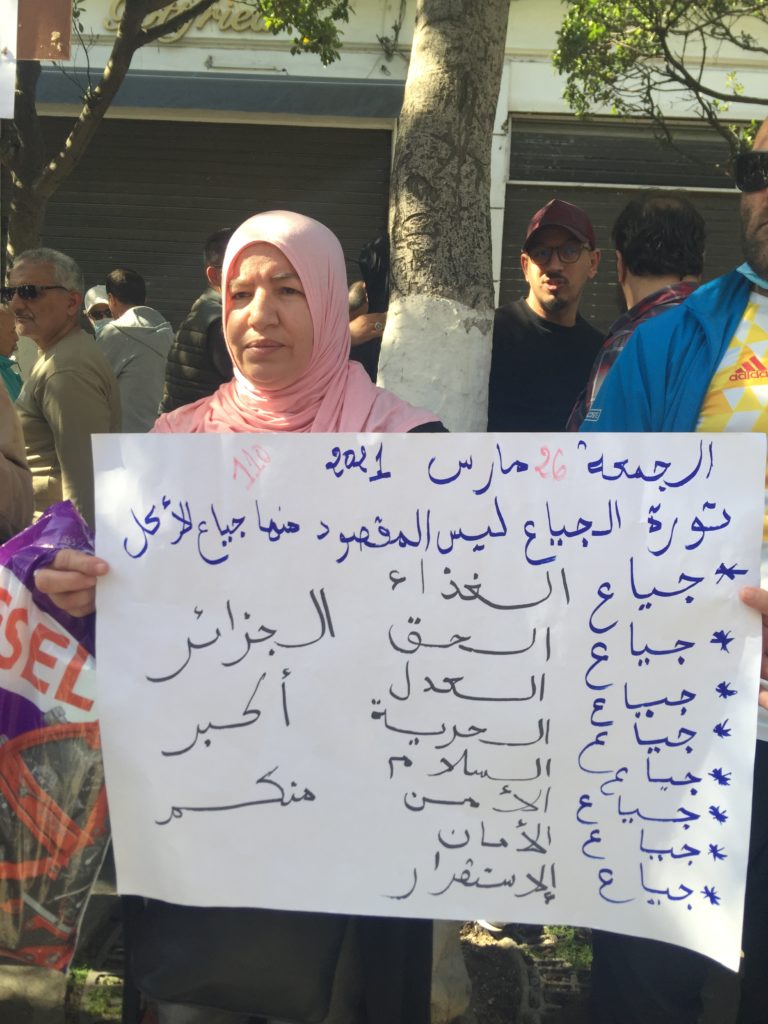 الجمعة 26 مارس 2021
110
ثورة الجياع ليس المقصود منها جياع للأكل
* جياع الغذاء
* جياع الحق
* جياع العدل
* جياع الحرية
* جياع السلام
* جياع الأمن
* جياع الأمان
* جياع الإستقرار
الجزائر
أكبر
منكم
adidas